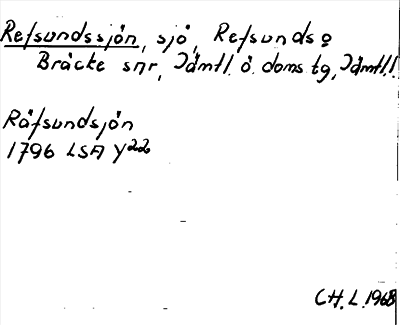 Refsundssjön, sjö, Refsunds
Bräcke snr, Jämtl. ö. doms.tg, Jämtl.l.
Räfsundsjön
1796 LSA Y22
CH.L.1968